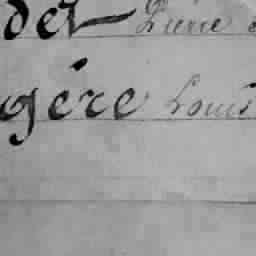 det Pierre
gére Louis